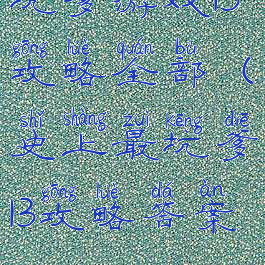 坑爹游戏13
gōng lüè quán bù
攻略全部(
shǐ shàng zuì kēng diē
史上最坑爹
gōng lüè dá àn
13攻略答案